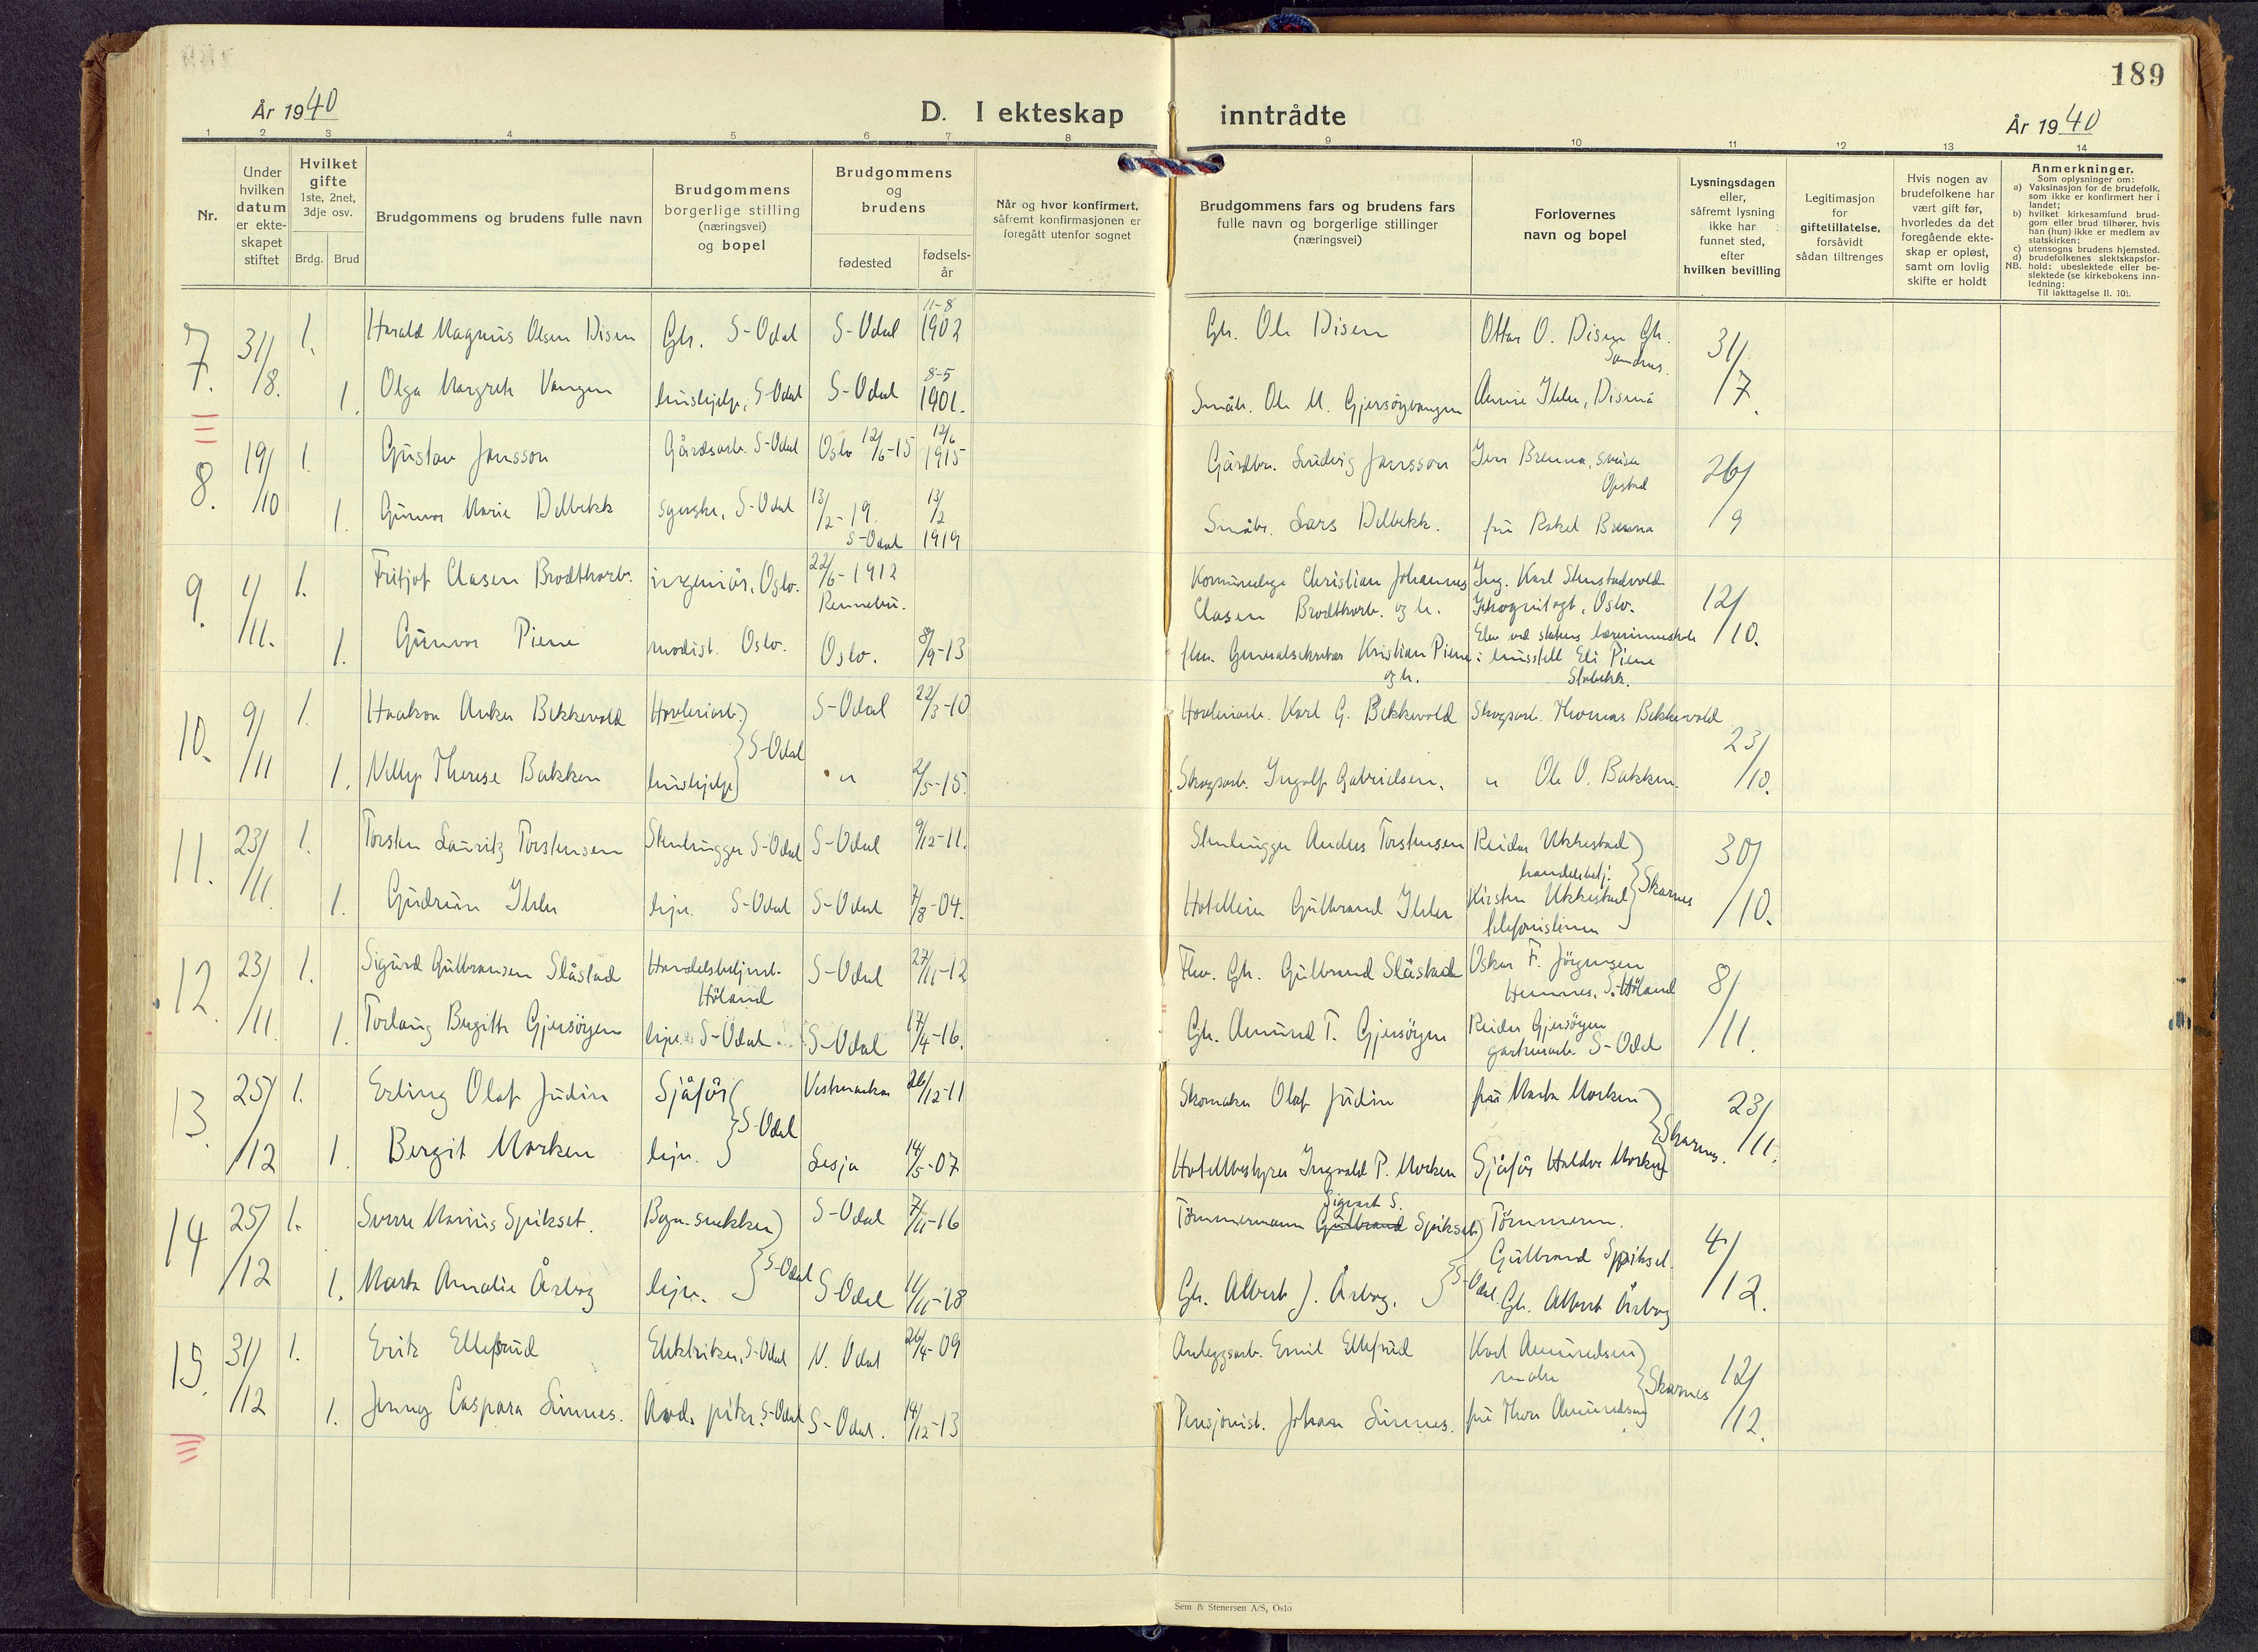 189
År 1940
D. I ekteskap inntrådte
År 1940
1 2 3 4 5 6 7 8 9 10 11 12 13 14
Nr.
Under
hvilken
datum
er ekte-
skapet
stiftet
Hvilket
gifte
1ste, 2net,
3dje osv.
Brdg. Brud
Brudgommens og brudens fulle navn
Brudgommens
borgerlige stilling
(næringsvei)
og bopel
Brudgommens
og
brudens
fødested
fødsels-
år
Når og hvor konfirmert,
såfremt konfirmasjonen er
foregått utenfor sognet
Brudgommens fars og brudens fars
fulle navn og borgerlige stillinger
(næringsvei)
Forlovernes
navn og bopel
Lysningsdagen
eller,
såfremt lysning
ikke har
funnet sted,
efter
hvilken bevilling
Legitimasjon
for
giftetillatelse,
forsåvidt
sådan tiltrenges
Hvis nogen av
brudefolkene har
vært gift før,
hvorledes da det
foregående ekte-
skap er opløst,
samt om lovlig
skifte er holdt
Anmerkninger.
Som oplysninger om:
a) Vaksinasjon for de brudefolk,
som ikke er konfirmert her i
landet;
b) hvilket kirkesamfund brud-
gom eller brud tilhører, hvis
han (hun) ikke er medlem av
statskirken;
c) utensogns brudens hjemsted.
d) brudefolkenes slektskapsfor-
NB. hold: ubeslektede eller be-
slektede (se kirkebokens inn-
ledning:
Til iakttagelse II. 10).
7. 31/8. 1. Harald Magnus Olsen Disen Gbr. S-Odal S-Odal 11-8 1902 Gbr. Ole Disen Ottar O. Disen Gbr. Sandnes. 31/7.
1. Olga Margrete Vangen hushjelp, S-Odal S-Odal 8-5 1901. Småbr. Ole M. Gjersøyvangen Annie Ihler, Disenå
8. 19/10 1. Gustav Jansson Gårdsarb. S-Odal Oslo 12/6-15 12/6 1915 Gårdbr. Ludvig Jansson Jens Brenna, sveiser Opstad 26/9
1. Gunvor Marie Delbekk syerske, S-Odal 13/2-19. S-Odal 13/2 1919 Småbr. Lars Delbekk. fru Rakel Brenna
9. 1/11. 1. Fritjof Clasen Brodtkorb. ingeniør, Oslo. 22/6-1912 Rennebu. Kommunelege Christian Johannes Clasen Brodtkorb. og h. Ing. Karl Stenstadvold Oslo. 12/10.
1. Gunvor Piene modist. Oslo. Oslo. 8/9-13 Generalsekretær Kristian Piene og h. Elev ved statens lærerinneskole i husstell Eli Piene Stabekk.
10. 9/11 1. Haakon Anker Bekkevold Høvleriarb. } S-Odal S-Odal 22/3-10 Høvleriarb. Karl G. Bekkevold Skogsarb. Thomas Bekkevold 23/10.
1. Nelly Therese Bakken hushjelp " 2/5-15. Skogsarb. Ingolf Gabrielsen. " Ole O. Bakken.
11. 23/11. 1. Torsten Lauritz Torstensen Stenhugger S-Odal S-Odal 9/12-11. Stenhugger Anders Torstensen Reidar Ukkestad handelsbetj. } Skarnes 30/10.
1. Gudrun Ihler hjv. S-Odal S-Odal 7/8-04. Hotelleier Gulbrand Ihler Kirsten Ukkestad telefonistinne
12. 23/11. 1. Sigurd Gulbransen Slåstad Handelsbetjent. Höland S-Odal 27/11-12 Fhv. Gbr. Gulbrand Slåstad Oskar F. Jörgensen Hemnes, S. Höland 8/11.
1. Torlaug Birgitte Gjersöyen hjv. S-Odal. S-Odal 17/4-16. Gbr. Amund T. Gjersöyen Reidar Gjersöyen gartnerarb. S-Odal
13. 25/12 1. Erling Olaf Judin Sjåför } S-Odal Vestmarka 26/12-11 Skomaker Olaf Judin fru Marta Morken } Skarnes. 23/11.
1. Bergit Morken hjv. Lesja 14/5-07 Hotellbestyrer Ingvald P. Morken Sjåför Haldor Morken
14 25/12 1. Sverre Marius Spikset. Bygn.snekker } S-Odal S-Odal 7/11-16 Tömmermann Gulbrand Sigvart S. Spikset } S-Odal. Tömmerm. Gulbrand Spikset. 4/12.
1. Marta Amalie Årbog hjv. S-Odal 11/11-18 Gbr. Albert J. Årbog. Gbr. Albert Årbog
15. 31/12 1. Erik Ellefsrud Elektriker, S-Odal N. Odal 26/4-09 Anleggsarb. Emil Ellefsrud Karl Amundsen maler } Skarnes 12/12.
1. Jenny Caspara Linnes. S-Odal S-Odal. 14/12-13 Pensjonist. Johan Linnes. fru Thora Amundsen
Sem & Stenersen A/S, Oslo